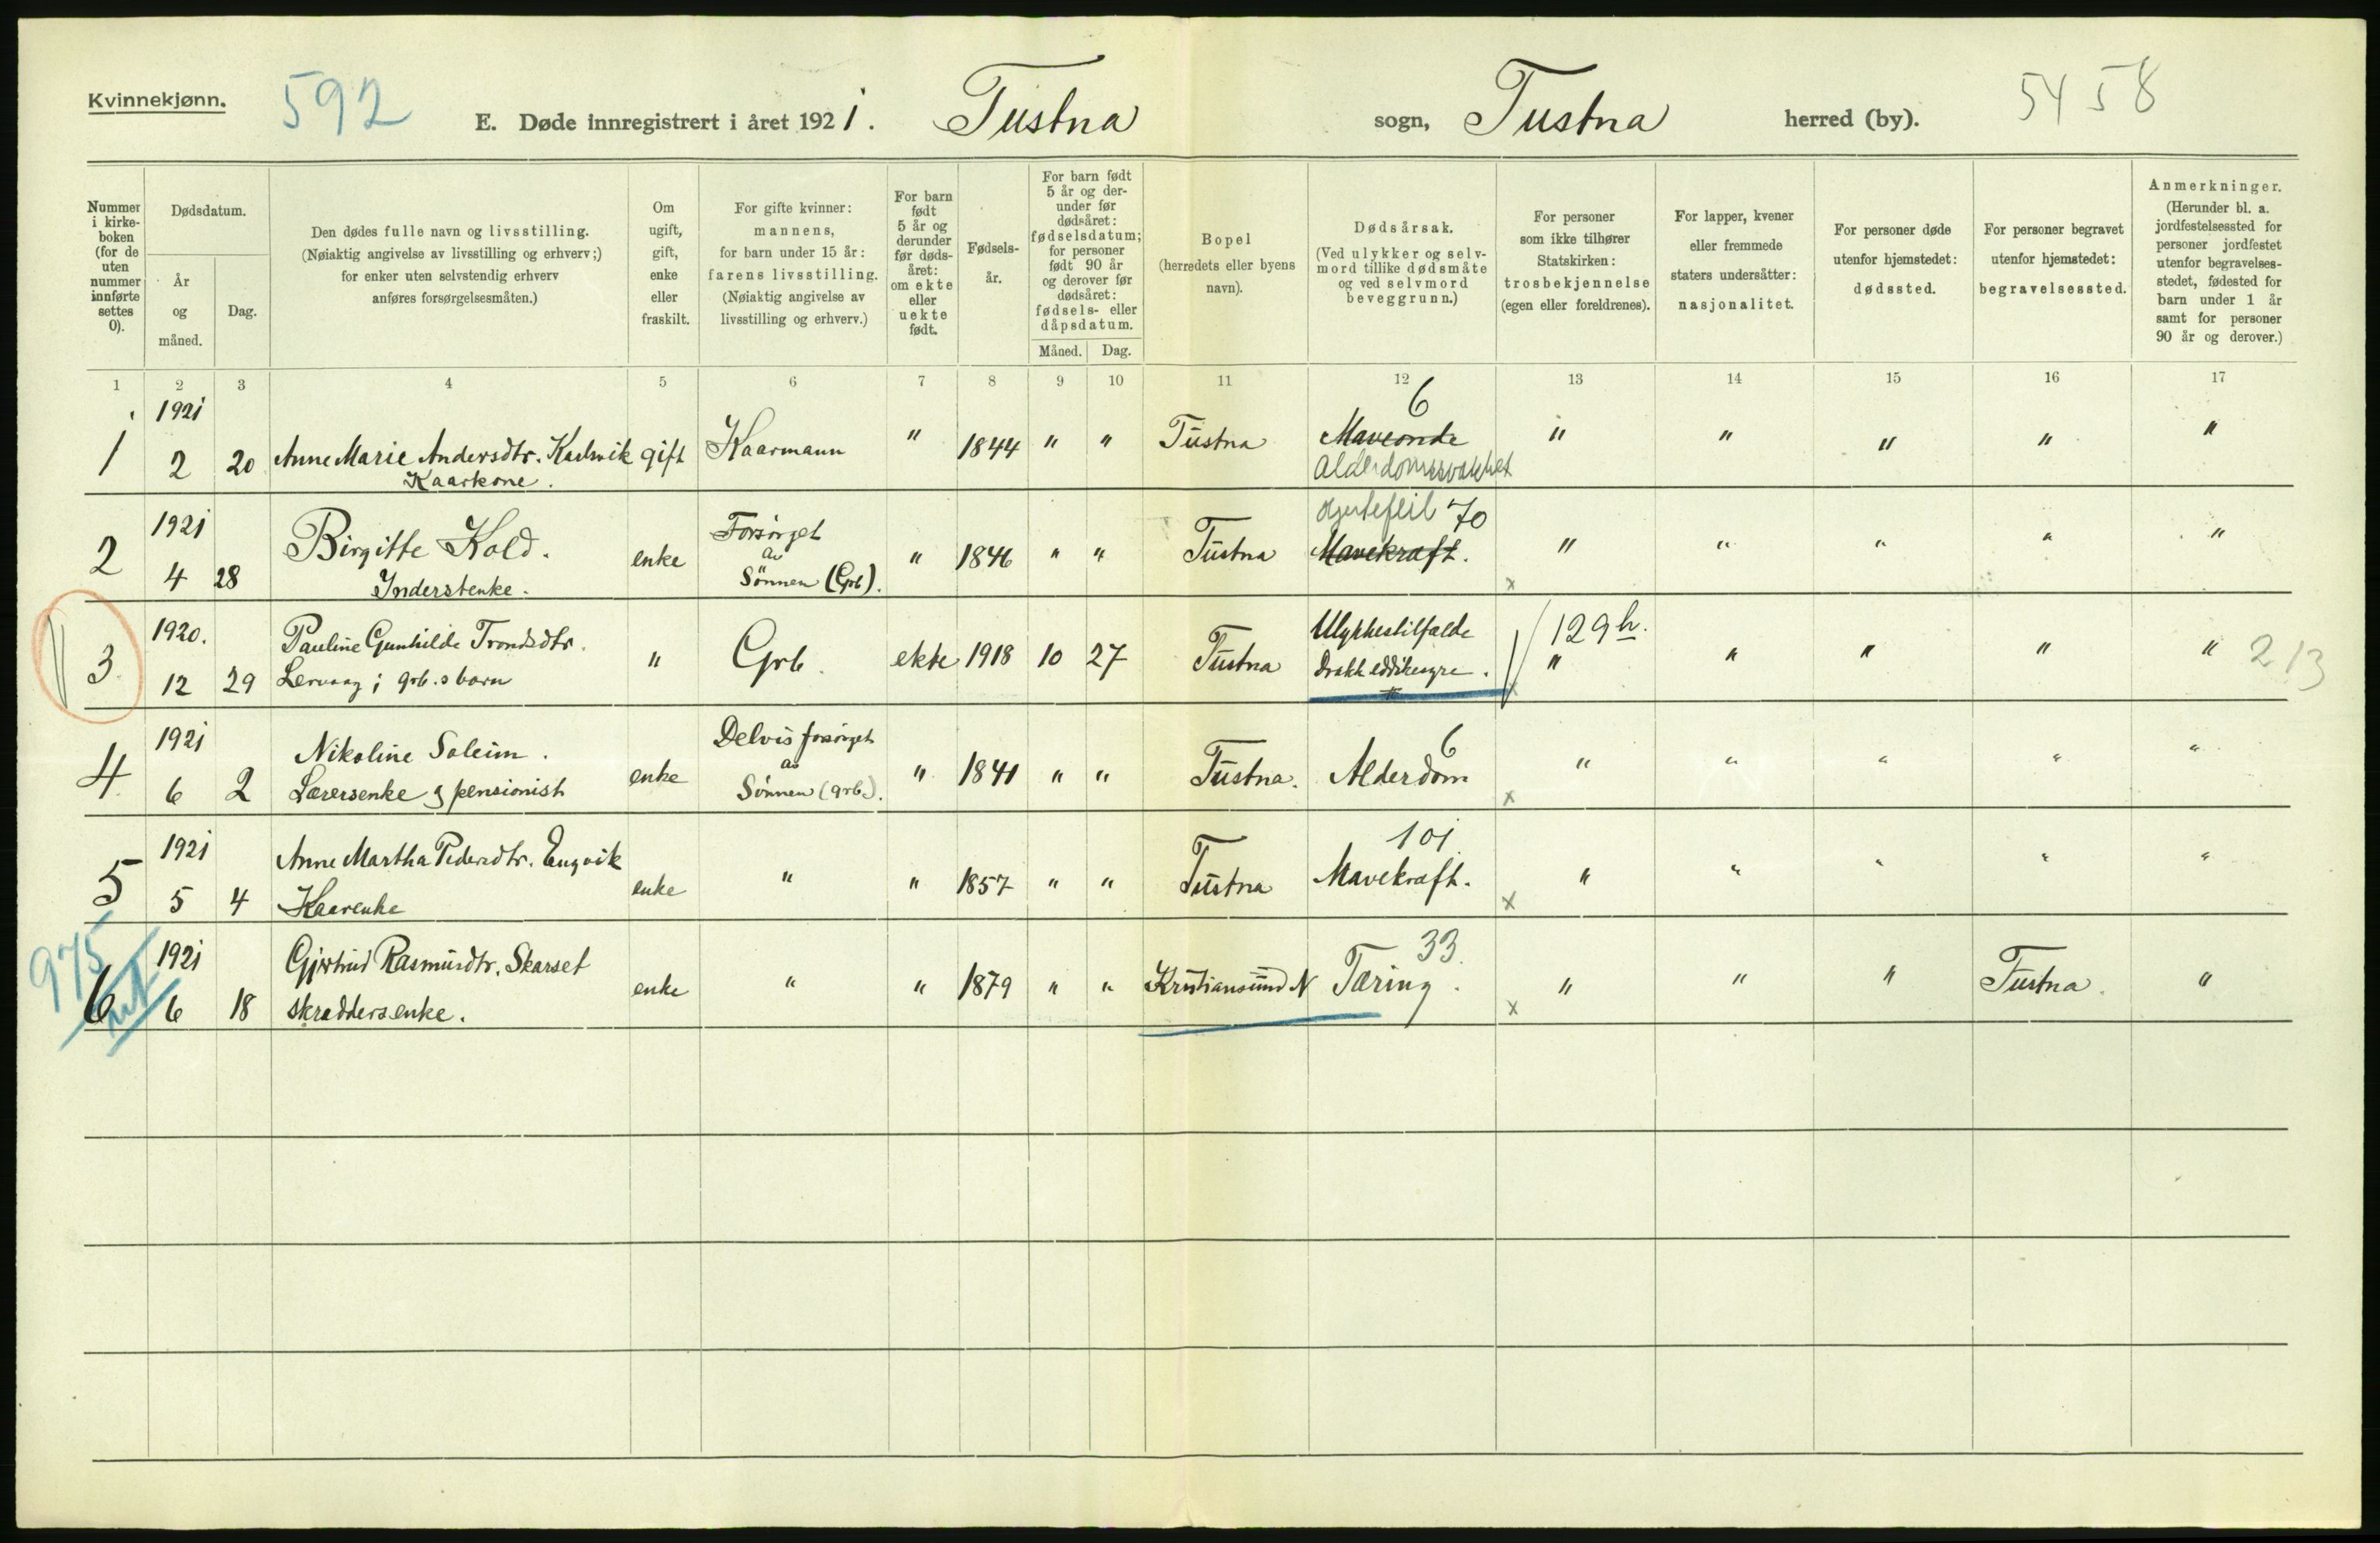 Kvinnekjønn.
592
E. Døde innregistrert i året 1921. Tustna sogn, Tustna herred (by).
5458
Nummer i kirke-boken (for de uten nummer innførte settes 0).
Dødsdatum.
År og måned.
Dag.
Den dødes fulle navn og livsstilling.
(Nøiaktig angivelse av livsstilling og erhverv;)
for enker uten selvstendig erhverv
anføres forsørgelsesmåten.)
Om ugift, gift, enke eller fraskilt.
For gifte kvinner: mannens, for barn under 15 år: farens livsstilling. (Nøiaktig angivelse av livsstilling og erhverv.)
For barn født 5 år og derunder før døds-året: om ekte eller uekte født.
Fødsels-år.
For barn født 5 år og der-under før dødsåret: fødselsdatum; for personer født 90 år og derover før dødsåret: fødsels- eller dåpsdatum.
Måned.
Dag.
Bopel
(herredets eller byens navn).
Dødsårsak.
(Ved ulykker og selv-mord tillike dødsmåte og ved selvmord beveggrunn.)
For personer som ikke tilhører Statskirken: trosbekjennelse (egen eller foreldrenes).
For lapper, kvener eller fremmede staters undersåtter: nasjonalitet.
For personer døde utenfor hjemstedet: dødssted.
For personer begravet utenfor hjemstedet: begravelsessted.
Anmerkninger.
(Herunder bl. a. jordfestelsessted for personer jordfestet utenfor begravelses-stedet, fødested for barn under 1 år samt for personer 90 år og derover.)
1 2 3 4 5 6 7 8 9 10 11 12 13 14 15 16 17
1921 6
1 2 20 Anne Marie Andersdtr. Karlsvik gift Kaarmann " 1844 " " Tustna Maveonde " " " " "
Kaarkone. Alderdomssvakhet
1921 Forsørget Hjertefeil 70
2 4 28 Birgitte Kold. enke av " 1846 " " Tustna Mavekraft. " " " " "
Inderstenke. Sønnen (Grb).
1920. Pauline Gunhilde Trondsdtr. Ulykkestilfælde 129h.
3 12 29 Lervaag; grb.s barn " Grb. ekte 1918 10 27 Tustna Drakk eddiksyre. " " " " " 213
1921 Nikoline Soleim. Delvis forsørget 6
4 6 2 Lærersenke og pensionist enke av " 1841 " " Tustna. Alderdom " " " " "
Sønnen (grb.).
1921 Anne Martha Pedersdtr. Engvik 101
5 5 4 Kaarenke enke " " 1857 " " Tustna Mavekraft. " " " " "
975
1921 Gjertrud Rasmusdtr. Skarset 33.
6 6 18 skreddersenke. enke " " 1879 " " Kristiansund N Tæring. " " " Tustna. "